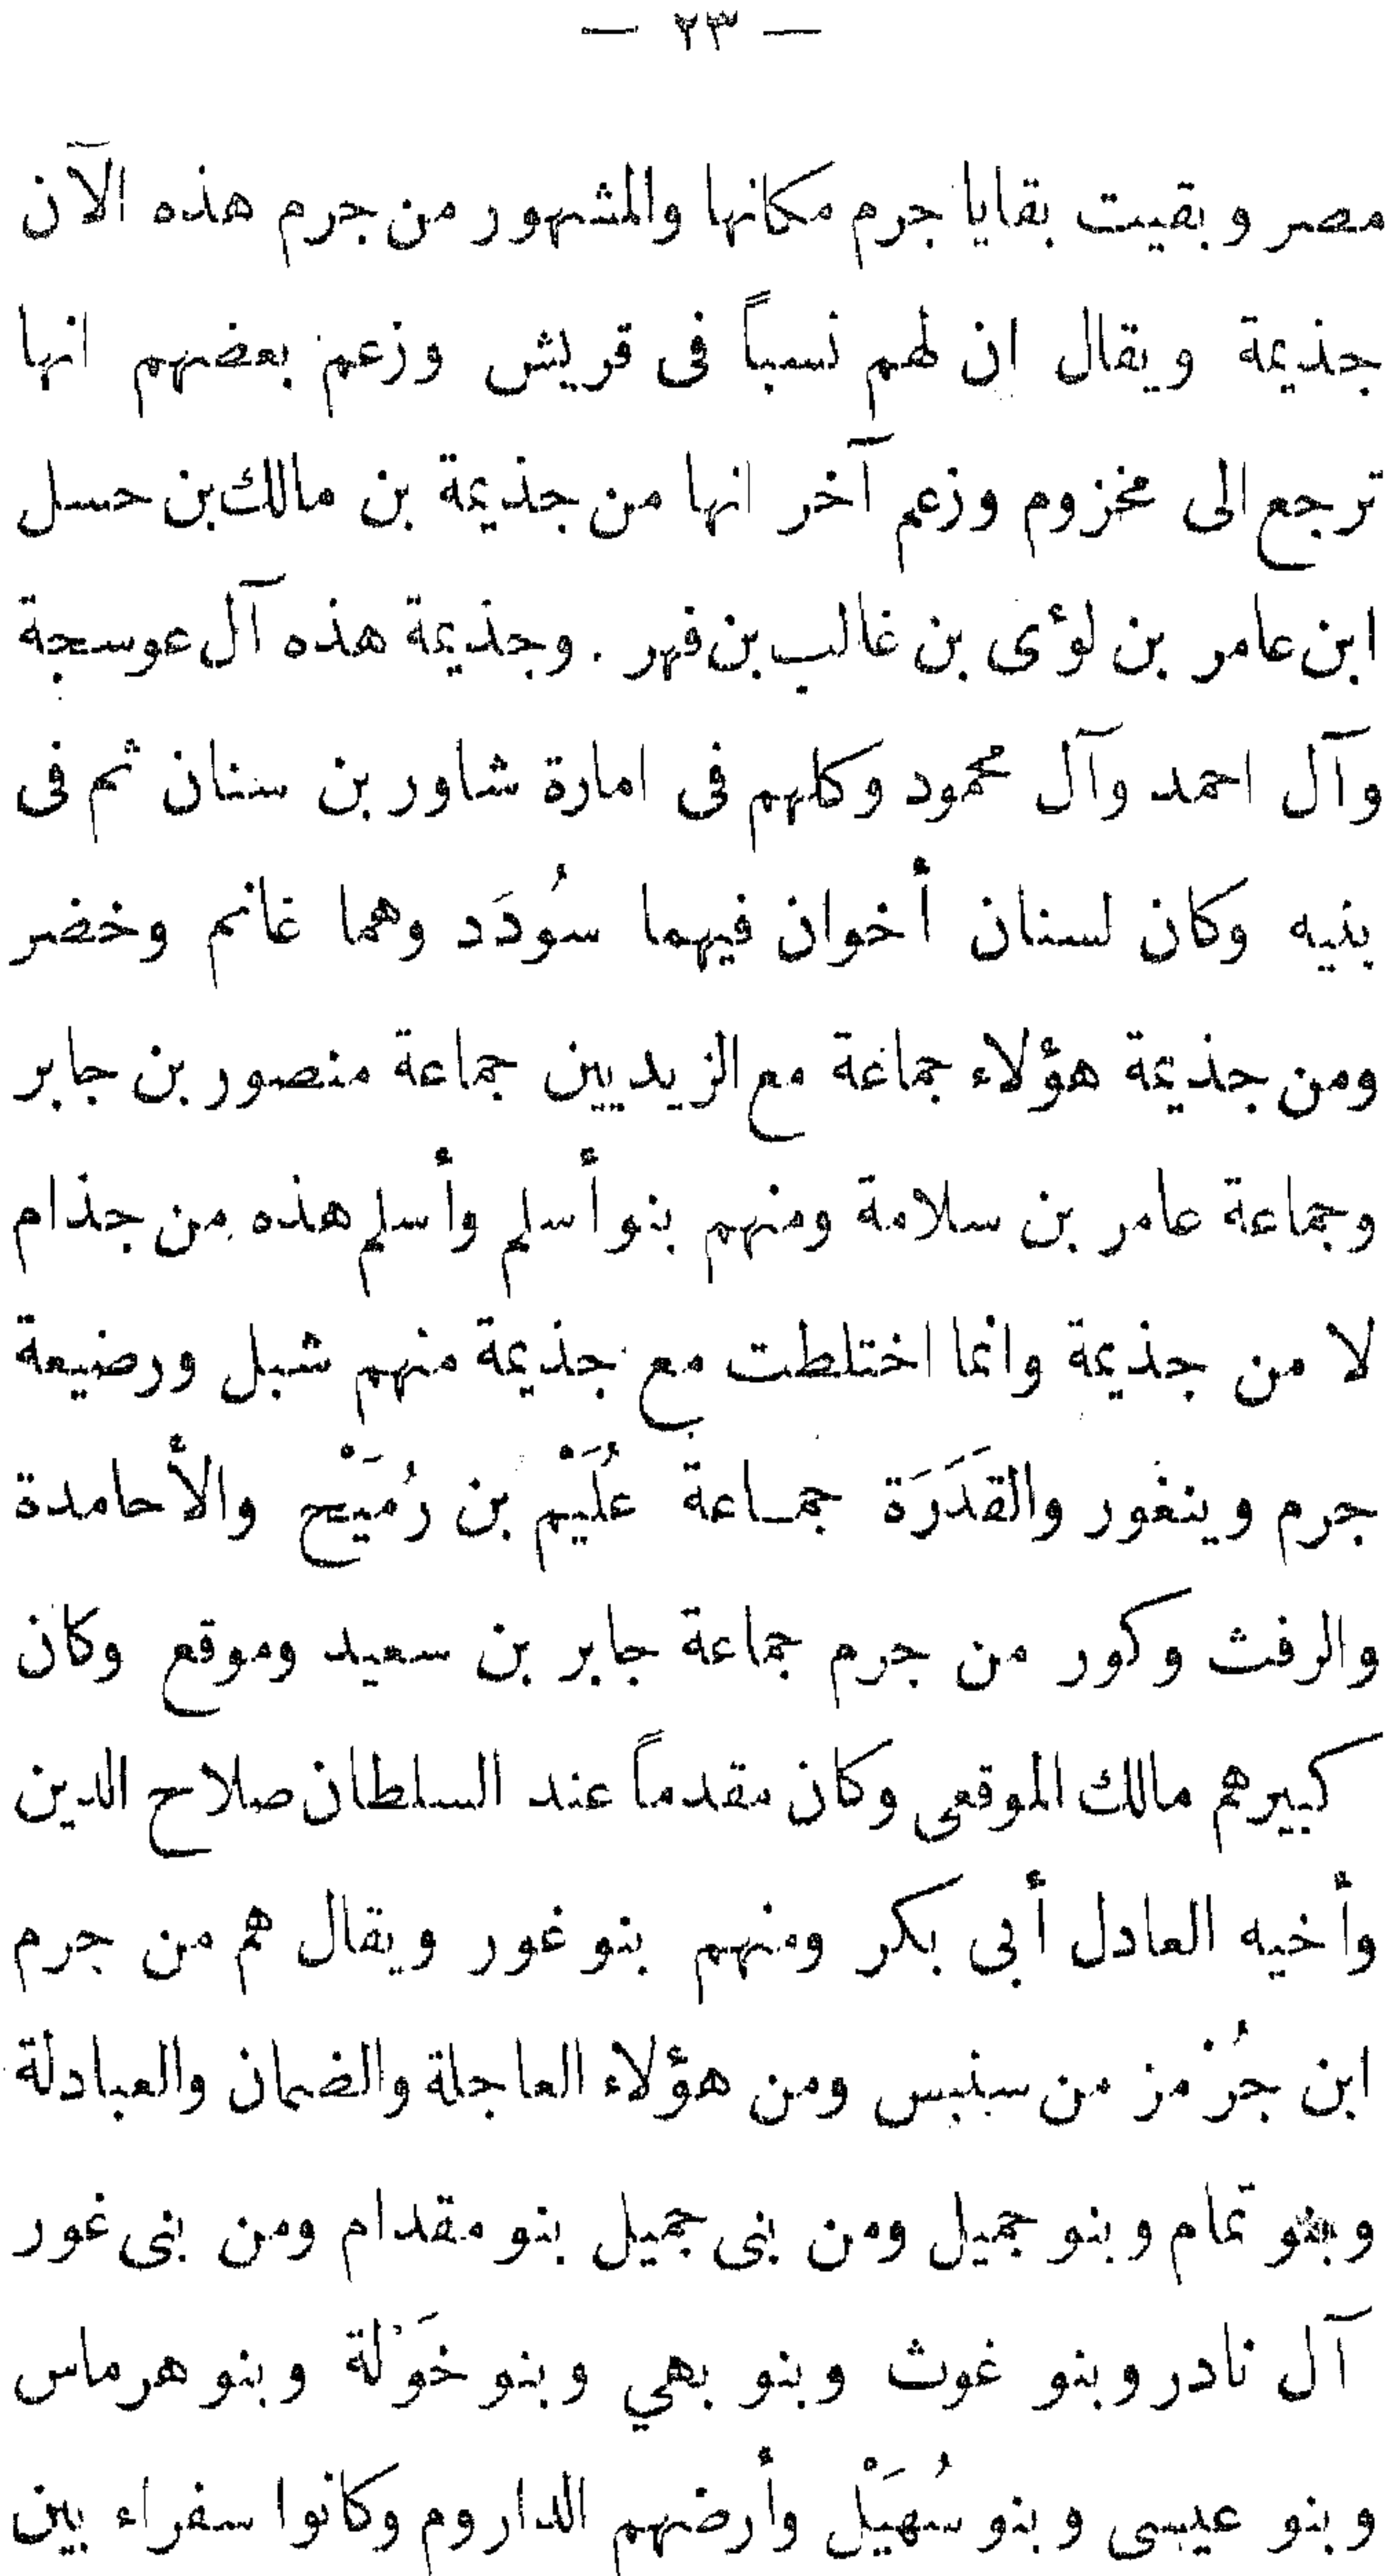 — ٢٣ —
مصر وبقيت بقايا جرم مكانها والمشهور من جرم هذه الآن
جذيمة ويقال ان لهم نسباً فى قريش وزعم بعضهم انها
ترجع الى مخزوم وزعم آخر انها من جذيمة بن مالك بن حسل
ابن عامر بن لؤى بن غالب بن فهر . وجذيمة هذه آل عوسجة
وآل احمد وآل محمود وكلهم فى امارة شاور بن سنان ثم فى
بنيه وكان لسنان أخوان فيهما سُودَد وهما غانم وخضر
ومن جذيمة هؤلاء جماعة مع الزيديين جماعة منصور بن جابر
وجماعة عامر بن سلامة ومنهم بنو أسلم وأسلم هذه من جذام
لا من جذيمة وانما اختلطت مع جذيمة منهم شبل ورضيعة
جرم وينغور والقَدَرَة جماعة عُلَيْم بن رُمَيْح والأحامدة
والرفث وكور من جرم جماعة جابر بن سعيد وموقع وكان
كبيرهم مالك الموقعى وكان مقدماً عند السلطان صلاح الدين
وأخيه العادل أبى بكر ومنهم بنو غور ويقال هم من جرم
ابن جُرْمز من سنبس ومن هؤلاء العاجلة والضمان والعبادلة
وبنو تمام وبنو جميل ومن بنى جميل بنو مقدام ومن بنى غور
آل نادر وبنو غوث وبنو بهي وبنو خَوْلة وبنو هرماس
وبنو عيسى وبنو سُهَيْل وأرضهم الداروم وكانوا سفراء بين